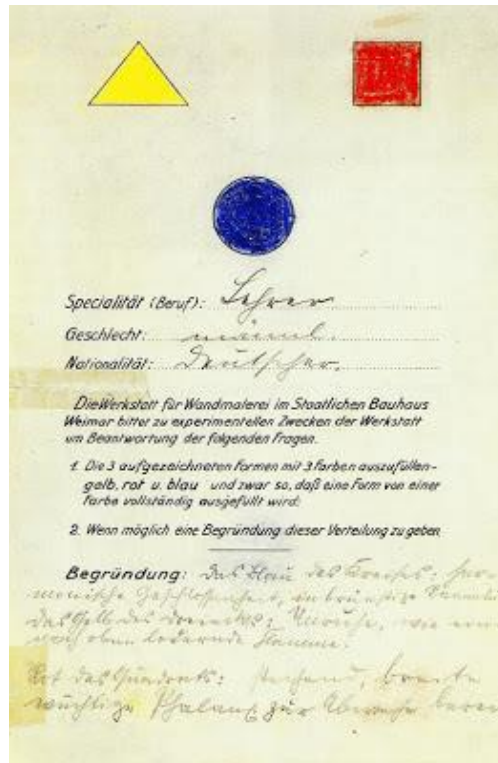 Specialität (Beruf): Lehrer
Geschlecht: männl.
Nationalität: Deutscher.
Die Werkstatt für Wandmalerei im Staatlichen Bauhaus
Weimar bittet zu experimentellen Zwecken der Werkstatt
um Beantwortung der folgenden Fragen.
1. Die 3 aufgezeichneten Formen mit 3 Farben auszufüllen-
gelb, rot u. blau und zwar so, daß eine Form von einer
Farbe vollständig ausgefüllt wird:
2. Wenn möglich eine Begründung dieser Verteilung zu geben
Begründung: Das Blau des Kreises: har-
monische Geschlossenheit,
Das Gelb des Dreiecks: Unruhe, wie eine
nach oben lodernde Flamme.
Rot des Quadrats: stehend, breite
wuchtige Phalanx zur Abwehr